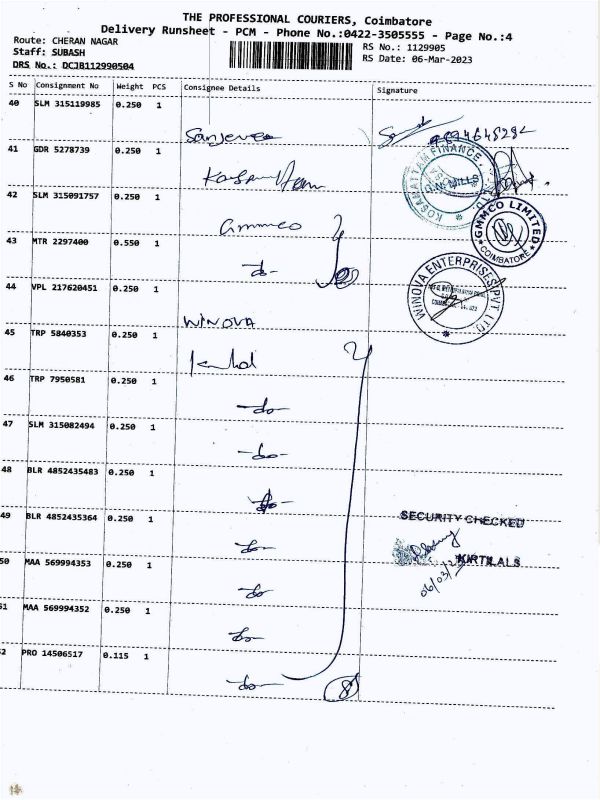 THE PROFESSIONAL COURIERS, Coimbatore
Delivery Runsheet - PCM - Phone No.:0422-3505555 - Page No.:4
Route: CHERAN NAGAR
RS No.: 1129905
Staff: SUBASH
RS Date: 06-Mar-2023
DRS No.: DCJB112990504
S No Consignment No Weight PCS Consignee Details Signature
40 SLM 315119985 0.250 1
41 GDR 5278739 0.250 1
KOSAMATTAM FINANCE
G.N. MILLS
42 SLM 315091757 0.250 1 Gmmco
GMMCO LIMITED
COIMBATORE
43 MTR 2297400 0.550 1 -do-
44 VPL 217620451 0.250 1 WINOVA
WINOVA ENTERPRISES PVT LTD
45 TRP 5840353 0.250 1
46 TRP 7950581 0.250 1 -do-
47 SLM 315082494 0.250 1 -do-
48 BLR 4852435483 0.250 1 -do-
49 BLR 4852435364 0.250 1 -do-
SECURITY CHECKED
KIRTILALS
06/03/23
50 MAA 569994353 0.250 1 -do-
51 MAA 569994352 0.250 1 -do-
52 PRO 14506517 0.115 1 -do- 8